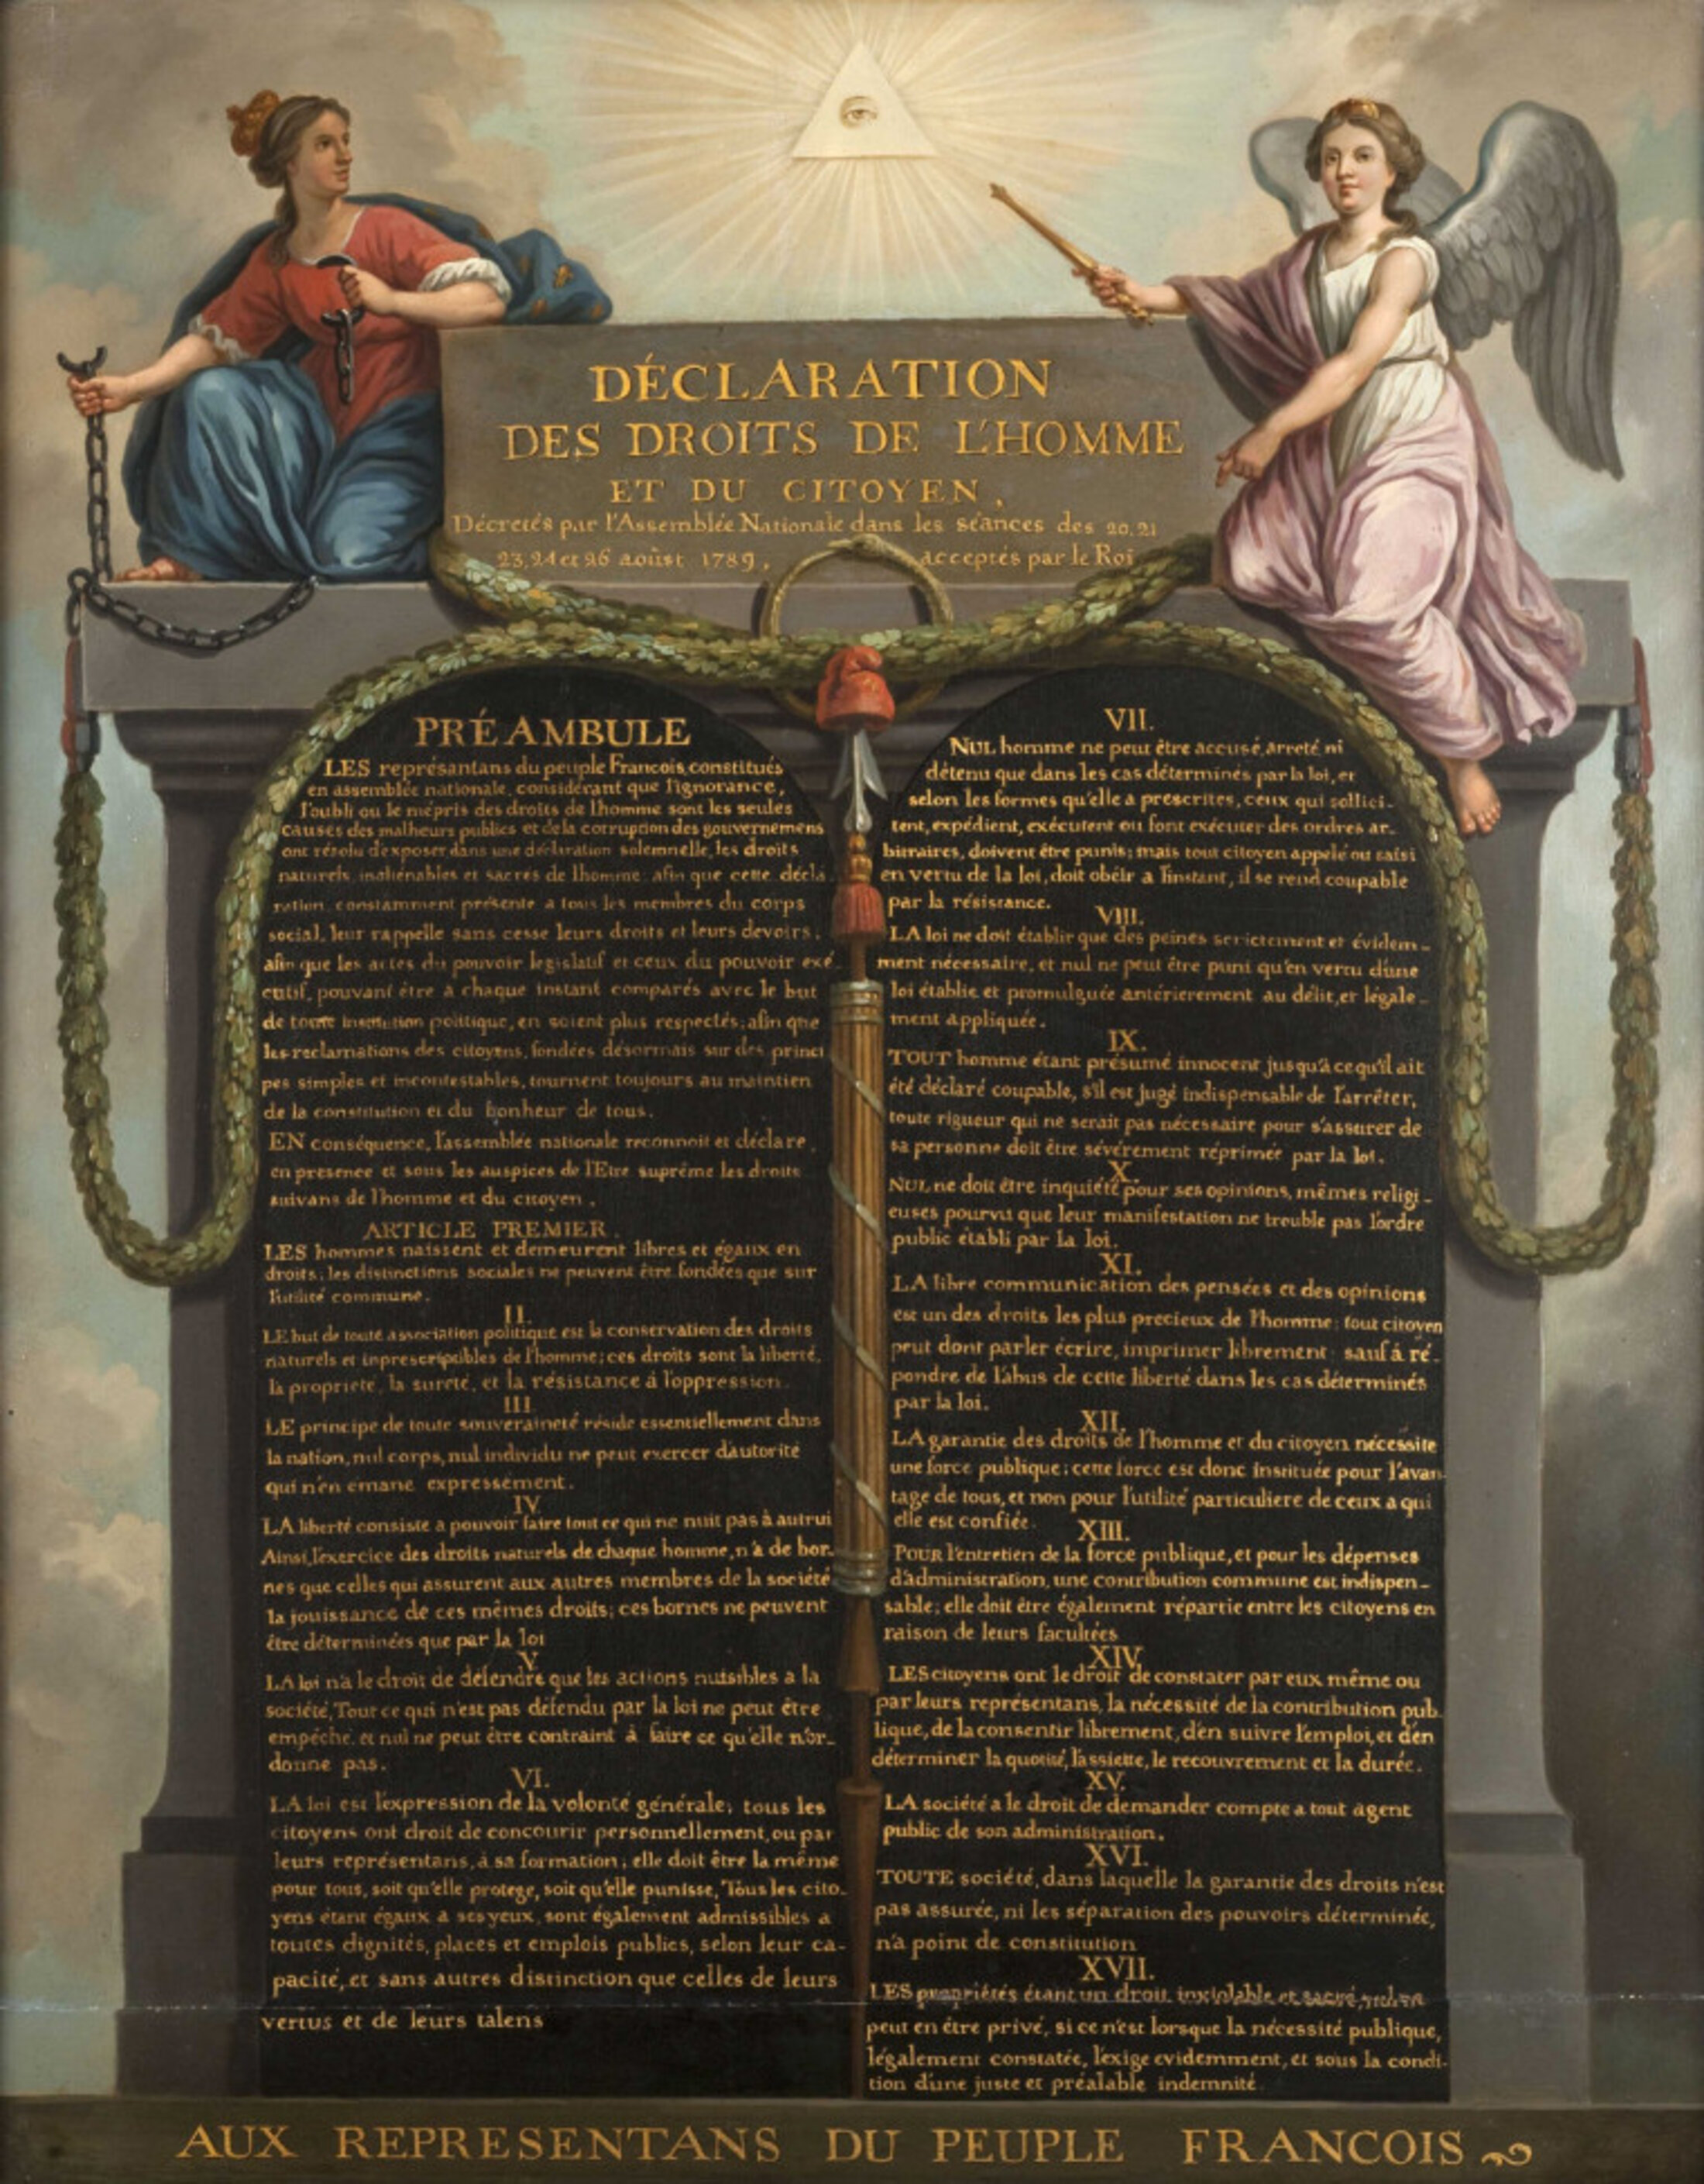 DÉCLARATION
DES DROITS DE L'HOMME
ET DU CITOYEN,
Décretés par l'Assemblée Nationale dans les séances des 20, 21
23, 24 et 26 aoûst 1789, acceptés par le Roi
PRÉAMBULE
LES représantans du peuple Francois, constitués
en assemblée nationale, considérant que l'ignorance,
l'oubli ou le mépris des droits de l'homme sont les seules
causes des malheurs publics et de la corruption des gouvernemens
ont résolu d'exposer dans une déclaration solemnelle, les droits
naturels, inaliénables et sacrés de l'homme; afin que cette décla
ration, constamment présente a tous les membres du corps
social, leur rappelle sans cesse leurs droits et leurs devoirs;
afin que les actes du pouvoir legislatif et ceux du pouvoir exé
cutif, pouvant être a chaque instant comparés avec le but
de toute institution politique, en soient plus respectés; afin que
les reclamations des citoyens, fondées désormais sur des princi
pes simples et incontestables, tournent toujours au maintien
de la constitution et du bonheur de tous.
EN conséquence, l'assemblée nationale reconnoit et déclare,
en presence et sous les auspices de l'Etre suprême les droits
suivans de l'homme et du citoyen.
ARTICLE PREMIER.
LES hommes naissent et demeurent libres et égaux en
droits; les distinctions sociales ne peuvent être fondées que sur
l'utilité commune.
II.
LE but de toute association politique est la conservation des droits
naturels et inprescriptibles de l'homme; ces droits sont la liberté,
la propriété, la sureté, et la résistance á l'oppression.
III.
LE principe de toute souveraineté réside essentiellement dans
la nation, nul corps, nul individu ne peut exercer d'autorité
qui n'en émane expressément.
IV.
LA liberté consiste a pouvoir faire tout ce qui ne nuit pas à autrui
Ainsi, l'exercice des droits naturels de chaque homme, n'a de bor-
nes que celles qui assurent aux autres membres de la société
la jouissance de ces mêmes droits; ces bornes ne peuvent
être déterminées que par la loi
V.
LA loi n'a le droit de défendre que les actions nuisibles a la
société, Tout ce qui n'est pas défendu par la loi ne peut être
empéché, et nul ne peut être contraint à faire ce qu'elle n'or-
donne pas.
VI.
LA loi est l'expression de la volonté générale; tous les
citoyens ont droit de concourir personnellement, ou par
leurs représentans, à sa formation; elle doit être la même
pour tous, soit qu'elle protege, soit qu'elle punisse, Tous les cito-
yens étant égaux a ses yeux, sont également admissibles a
toutes dignités, places et emplois publics, selon leur ca-
pacité, et sans autres distinction que celles de leurs
vertus et de leurs talens
VII.
NUL homme ne peut être accusé, arreté ni
détenu que dans les cas déterminés par la loi, et
selon les formes qu'elle a prescrites, ceux qui sollici-
tent, expédient, exécutent ou font exécuter des ordres ar-
bitraires, doivent être punis; mais tout citoyen appelé ou saisi
en vertu de la loi, doit obéir a l'instant, il se rend coupable
par la résistance.
VIII.
LA loi ne doit établir que des peines strictement et évidem-
ment nécessaire, et nul ne peut être puni qu'en vertu d'une
loi établie et promulguée antérierement au délit, et légale-
ment appliquée.
IX.
TOUT homme étant présumé innocent jusqu'à ce qu'il ait
été déclaré coupable, s'il est jugé indispensable de l'arrêter,
toute rigueur qui ne serait pas nécessaire pour s'assurer de
sa personne doit être sévèrement réprimée par la loi.
X.
NUL ne doit être inquiété pour ses opinions, mêmes religi-
euses pourvu que leur manifestation ne trouble pas l'ordre
public établi par la loi.
XI.
LA libre communication des pensées et des opinions
est un des droits les plus precieux de l'homme; tout citoyen
peut dont parler écrire, imprimer librement; sauf á ré-
pondre de l'abus de cette liberté dans les cas déterminés
par la loi.
XII.
LA garantie des droits de l'homme et du citoyen nécessite
une force publique; cette force est donc instituée pour l'avan-
tage de tous, et non pour l'utilité particuliere de ceux a qui
elle est confiée.
XIII.
POUR l'entretien de la force publique, et pour les dépenses
d'administration, une contribution commune est indispen-
sable; elle doit être également répartie entre les citoyens en
raison de leurs facultées
XIV.
LES citoyens ont le droit de constater par eux même ou
par leurs représentans, la nécessité de la contribution pub-
lique, de la consentir librement, d'en suivre l'emploi, et d'en
déterminer la quotité, l'assiette, le recouvrement et la durée.
XV.
LA société a le droit de demander compte a tout agent
public de son administration.
XVI.
TOUTE société, dans laquelle la garantie des droits n'est
pas assurée, ni les séparation des pouvoirs déterminée,
n'a point de constitution
XVII.
LES propriétés étant un droit inviolable et sacré, nul ne
peut en être privé, si ce n'est lorsque la nécessité publique,
légalement constatée, l'exige evidemment, et sous la condi-
tion d'une juste et préalable indemnité
AUX REPRESENTANS DU PEUPLE FRANCOIS